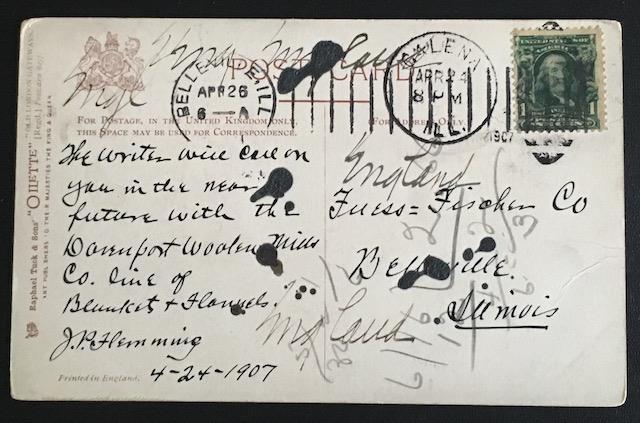 "OLD LONDON GATEWAYS."
Raphael Tuck & Sons' "OILETTE" [Regd.] Postcard
ART PUBLISHERS TO THEIR MAJESTIES THE KING & QUEEN
POST CARD
BELLEVILLE, ILL.
APR 26
6 — A
GALENA
APR 24
8 PM
ILL.
1907
FOR POSTAGE, IN THE UNITED KINGDOM ONLY,
THIS SPACE MAY BE USED FOR CORRESPONDENCE.
The writer will call on
you in the near
future with the
Davenport Woolen Mills
Co. line of
Blankets & Flannels
J.P. Flemming
4-24-1907
England
Fuess-Fischer Co
Belleville.
Illinois
England
Printed in England.